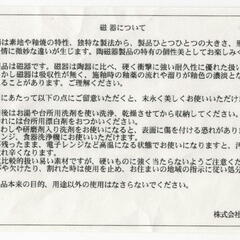 磁 器について
は素地や釉銭の特性、独特な製法から、製品ひとつひとつの大きさ、
情に微妙な違いが生じます。陶磁器製品の特有の個性を美としてお楽しみく
品は磁器です。磁器は陶器に比べ、硬く衝撃に強い耐久性に優れた
かし磁器は吸収性が無く、施釉時の釉薬の流れや溜りが釉色の濃淡と
ことがあります。ご理解ください。
にあたって以下の点にご留意いただくと、末永く美しくお使いいただけま
後はお湯や台所用洗剤を使い洗浄、乾燥させてから収納してください。
れには台所用漂白剤をおつかいください。
わしや研磨剤入り洗剤をお使いになると、表面に傷を付ける恐れがありま
ンジ、食器洗浄機にお使いいただけます。
が残ったまま、電子レンジなど高温になる状態でお使いになりますと、汚
れ辛くなります。
比較的扱い易い素材ですが、硬いものに強く当たらないようご注意くだ
が欠けたり、割れた時は使用を止め、お住まいの地域の指示に従い処分
品本来の目的、用途以外の使用はなさらないでください。
株式会社